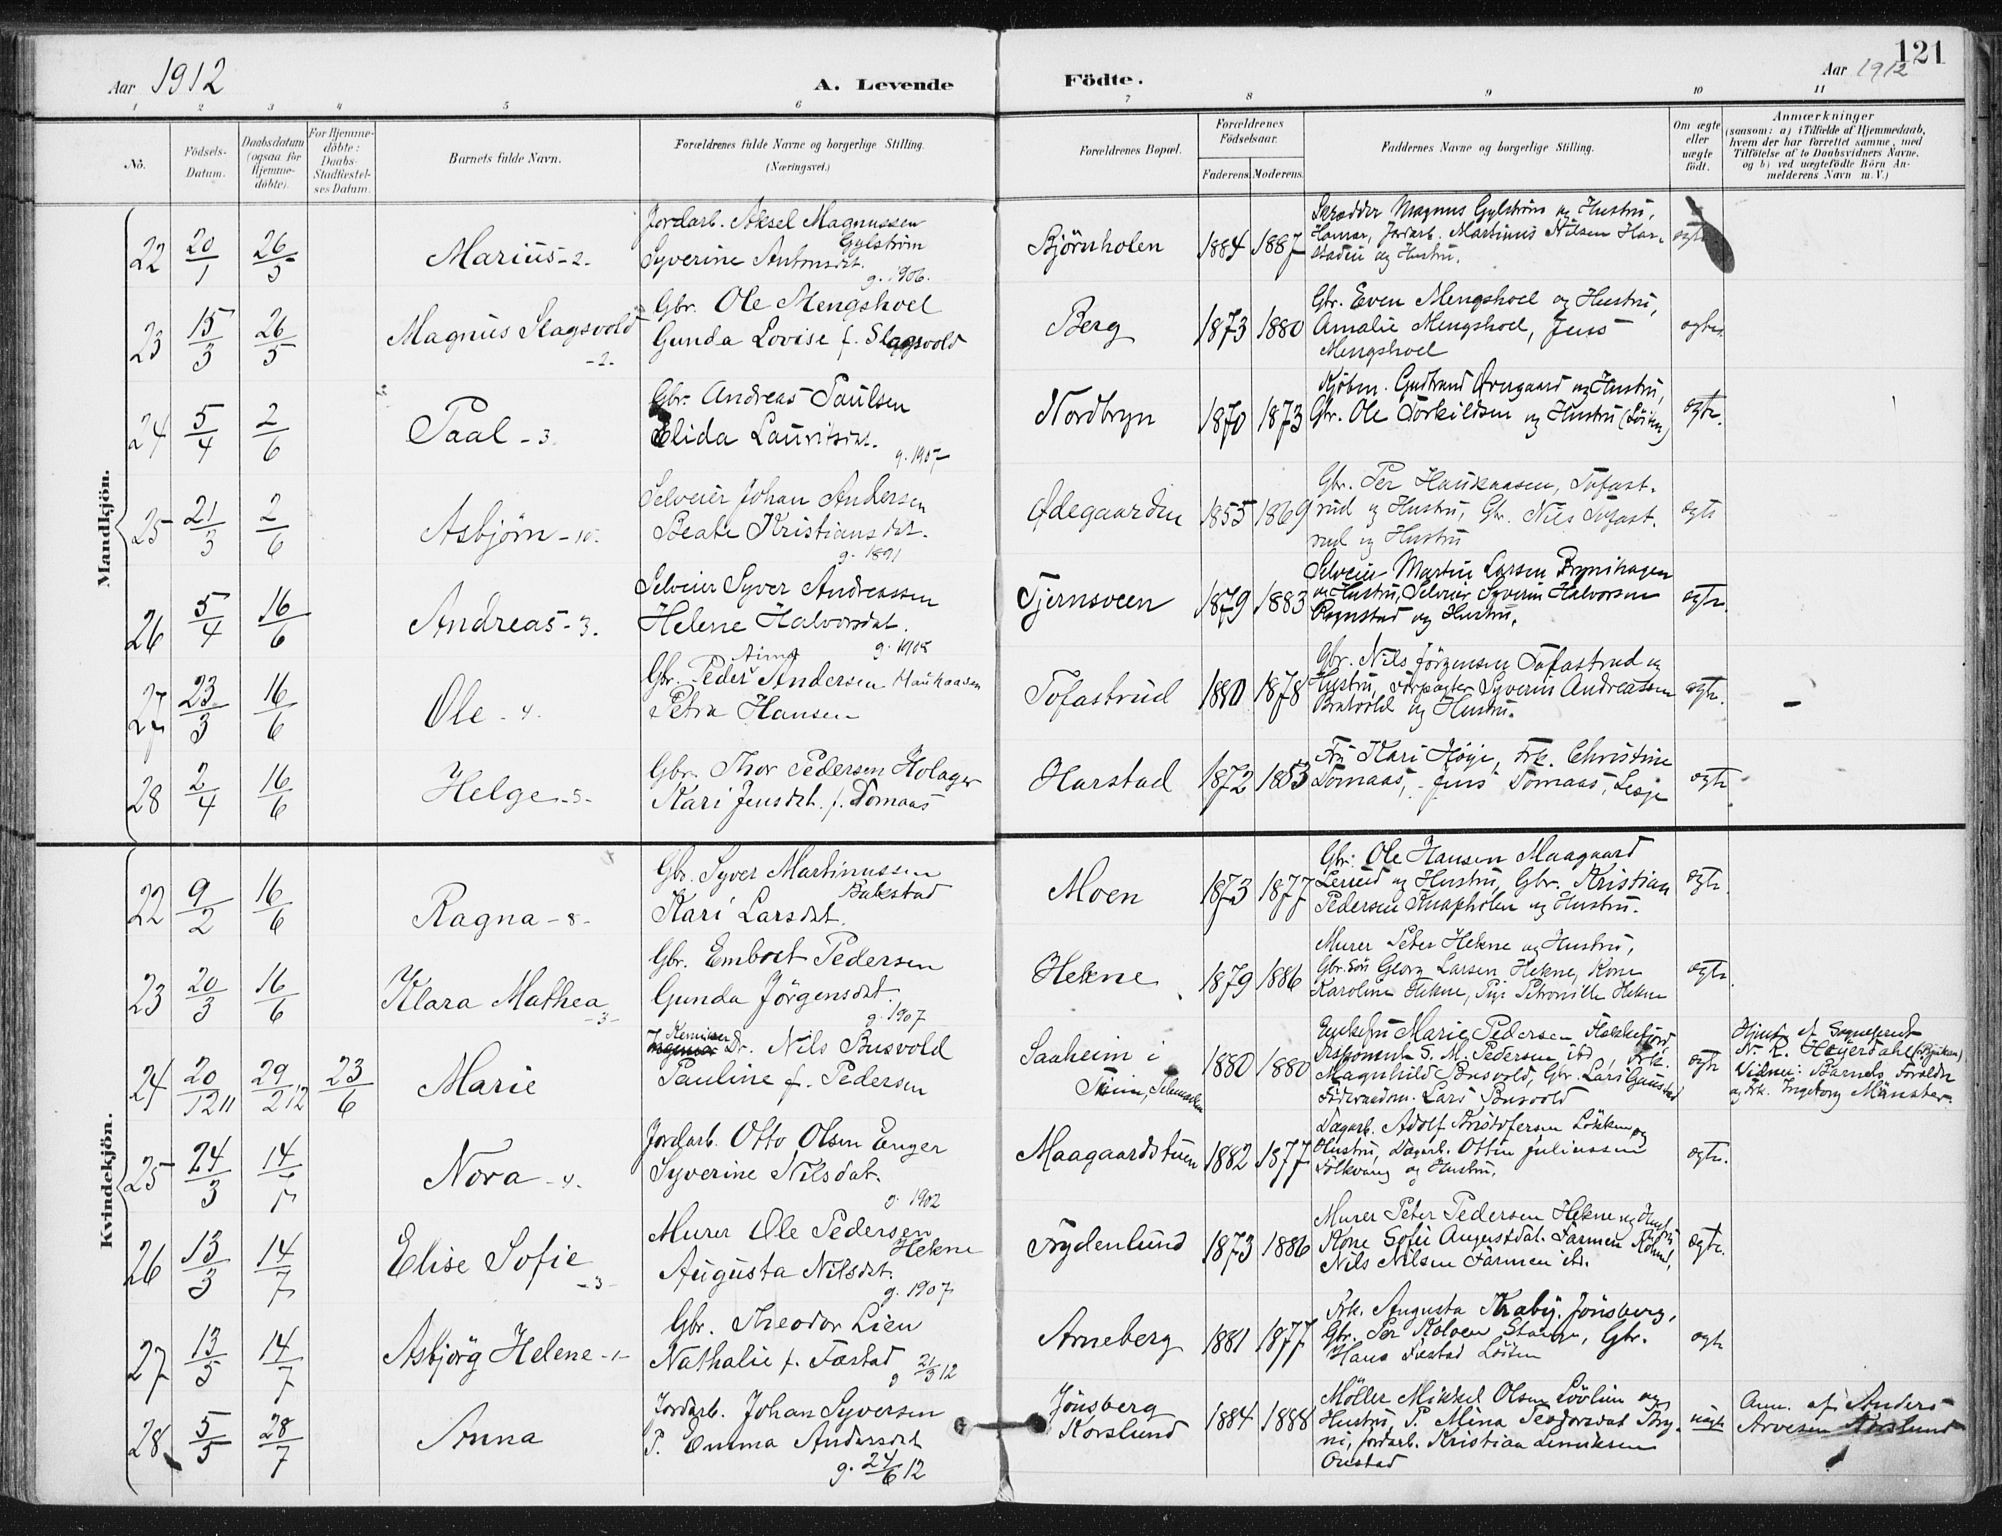 121
Aar 1912
A. Levende
Födte.
Aar 1912
1 2 3 4 5 6 7 8 9 10 11
No.
Födsels-
Datum.
Daabsdatum
(ogsaa for
Hjemme-
döbte).
For Hjemme-
döbte:
Daabs-
Stadfæstel-
ses Datum.
Barnets fulde Navn.
Forældrenes fulde Navne og borgerlige Stilling.
(Næringsvei.)
Forældrenes Bopæl.
Forældrenes
Födselsaar.
Faderens. Moderens.
Faddernes Navne og borgerlige Stilling.
Om ægte
eller
uægte
födt.
Anmærkninger
(saasom: a) i Tilfælde af Hjemmedaab,
hvem der har forrettet samme, med
Tilföielse af to Daabsvidners Navne,
og b) ved uægtefödte Börn An-
melderens Navn m. V.)
Mandkjön.
22 20/1 26/5 Marius - 2 -
Jordarb. Aksel Magnussen
Gylstrøm
Syverine Antonsdt.
g. 1906.
Bjørnholen 1884 1887
Skrædder Magnus Gylstrøm og Hustru,
Hamar, Jordarb. Martinus Nilsen Har-
staden og Hustru.
ægte
23 15/3 26/5 Magnus Slagsvold
- 2 -
Gbr. Ole Mengshoel
Gunda Lovise f. Slagsvold
Berg 1873 1880
Gbr. Even Mengshoel og Hustru,
Amalie Mengshoel, Jens
Mengshoel
ægte
24 5/4 2/6 Paal - 3
Gbr. Andreas Paulsen
Elida Lauritsdt.
g. 1905
Nordbryn 1870 1873
Kjøbm. Gudbrand Overgaard og Hustru,
Gbr. Ole Torkildsen og Hustru (Löiten)
ægte.
25 21/3 2/6 Asbjörn - 10 -
Selveier Johan Andersen
Beate Kristiansdt.
g. 1891
Ødegaarden 1855 1869
Gbr. Per Haukaasen, Tofast-
rud og Hustru, Gbr. Nils Tofast-
rud og Hustru
ægte
26 5/4 16/6 Andreas - 3.
Selveier Syver Andreassen
Helene Halvorsdat.
g. 1908
Tjernsveen 1879 1883
Selveier Martin Larsen Brynihagen
og Hustru, Selveier Syverin Halvorsen
Rognstad og Hustru.
ægte.
27 23/3 16/6 Ole - 4.
Gbr. Peder Andersen Haukaasen
Petra Hansen
Tofastrud 1880 1878
Gbr. Nils Jörgensen Tofastrud og
Hustru, Forpagter Syverin Andreassen
Bratvold og Hustru.
ægte. -
28 2/4 16/6 Helge - 5 -
Gbr. Thor Pedersen Holager
Kari Jensdt. f. Domaas
Harstad 1872 1853
Fru Kari Höije, Frk. Christine
Domaas, Jens Domaas, Lesje
ægte
Kvindekjön.
22 9/2 16/6 Ragna - 8 -
Gbr. Syver Martinussen
Bakstad
Kari Larsdt.
Moen 1873 1877
Gbr. Ole Hansen Maagaard
Lerud og Hustru, Gbr. Kristian
Pedersen Knapholen og Hustru.
ægte.
23 20/3 16/6 Klara Mathea
- 3 -
Gbr. Embret Pedersen
Gunda Jörgensdt.
g. 1907
Hekne 1879 1886
Murer Peter Hekne og Hustru,
Gbr.sön Georg Larsen Hekne, Kone
Karoline Hekne, Pige Petronille Hekne
ægte.
24 20/12 11 29/2 12 23/6 Marie
Kemiker
Dr. Nils Busvold
Pauline f. Pedersen
Saaheim i
Tinn, Telemarken
1880 1880
Enkefru Marie Pedersen Flekkefjord,
Disponent S. M. Pedersen ibd, Frk.
Magnhild Busvold, Gbr. Lars Gaustad
Föderaadsm. Lars Busvold
ægte
Hjmd. af Sogneprest
N. R. Heyerdahl (Rjukan)
Vidner: Barnets Foreldre
og Frk. Ingeborg Mänster.
25 24/3 14/7 Nora - 4.
Jordarb. Otto Olsen Enger
Syverine Nilsdat.
g. 1902
Maagaardstuen 1882 1877
Dagarb. Adolf Kristofersen Lökken og
Hustru, Dagarb. Otto Juliussen
Folkvang og Hustru.
ægte.
26 13/3 14/7 Elise Sofie
- 3 -
Murer Ole Pedersen
Hekne
Augusta Nilsdt.
g. 1907
Frydenlund 1873 1886
Murer Peter Pedersen Hekne og Hustru
Kone Sofie Augustdat. Farmen
Nils Nilsen Farmen ibd.
ægte.
27 13/5 14/7 Asbjörg Helene - 1 -
Gbr. Theodor Lien
Nathalie f. Fæstad
g 21/3 12
Arneberg 1881 1877
Frk. Augusta Kraby, Jönsberg,
Gbr. Per Kolven Stange, Gbr.
Hans Fæstad Löiten
ægte
28 5/5 28/7 Anna
Jordarb. Johan Syversen
P. Emma Andersdt
g. 24/6 12
Jönsberg
Korslund
1884 1888
Möller Mikkel Olsen Lövlien og
Hustru, P. Mina Teodorsdat Bry-
ni, Jordarb. Kristian Lundksen
Onstad
uægte
Anm. af Anders
Arvesen Korslund